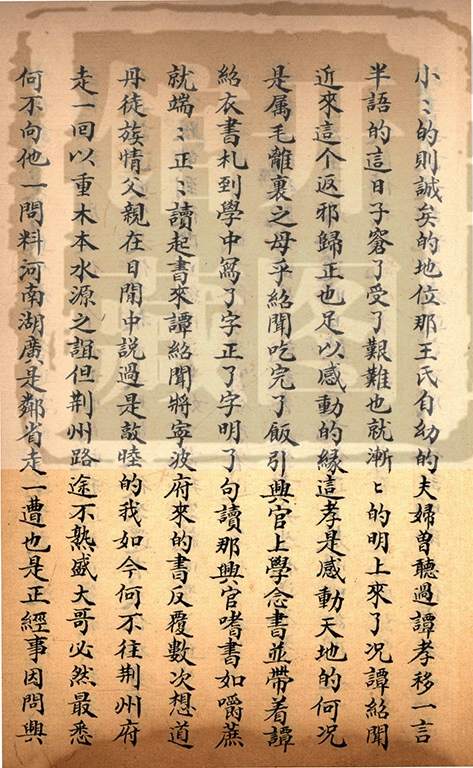 小〻的則誠矣的地位那王氏自幼的夫婦曽聽過譚孝移一言
半語的這日子窘了受了艱難也就漸〻的明上來了况譚紹聞
近來這个返邪歸正也足以感動的縁這孝是感動天地的何况
是属毛離裏之母乎紹聞吃完了飯引興官上學念書並帶着譚
紹衣書札到學中寫了字正了字明了句讀那興官嗜書如嚼蔗
就端〻正〻讀起書來譚紹聞將寧波府來的書反覆數次想道
丹徒族情父親在日閒中説過是敦睦的我如今何不往荆州府
走一回以重木本水源之誼但荆州路途不熟盛大哥必然最悉
何不向他一問料河南湖廣是鄰省走一遭也是正經事因問興